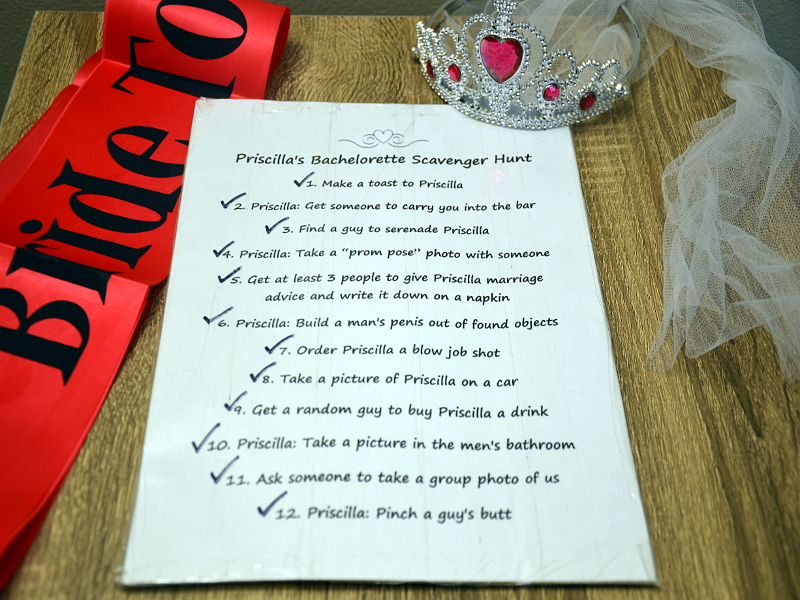 Bride TO
Priscilla's Bachelorette Scavenger Hunt
1. Make a toast to Priscilla
2. Priscilla: Get someone to carry you into the bar
3. Find a guy to serenade Priscilla
4. Priscilla: Take a “prom pose” photo with someone
5. Get at least 3 people to give Priscilla marriage
advice and write it down on a napkin
6. Priscilla: Build a man's penis out of found objects
7. Order Priscilla a blow job shot
8. Take a picture of Priscilla on a car
9. Get a random guy to buy Priscilla a drink
10. Priscilla: Take a picture in the men's bathroom
11. Ask someone to take a group photo of us
12. Priscilla: Pinch a guy's butt